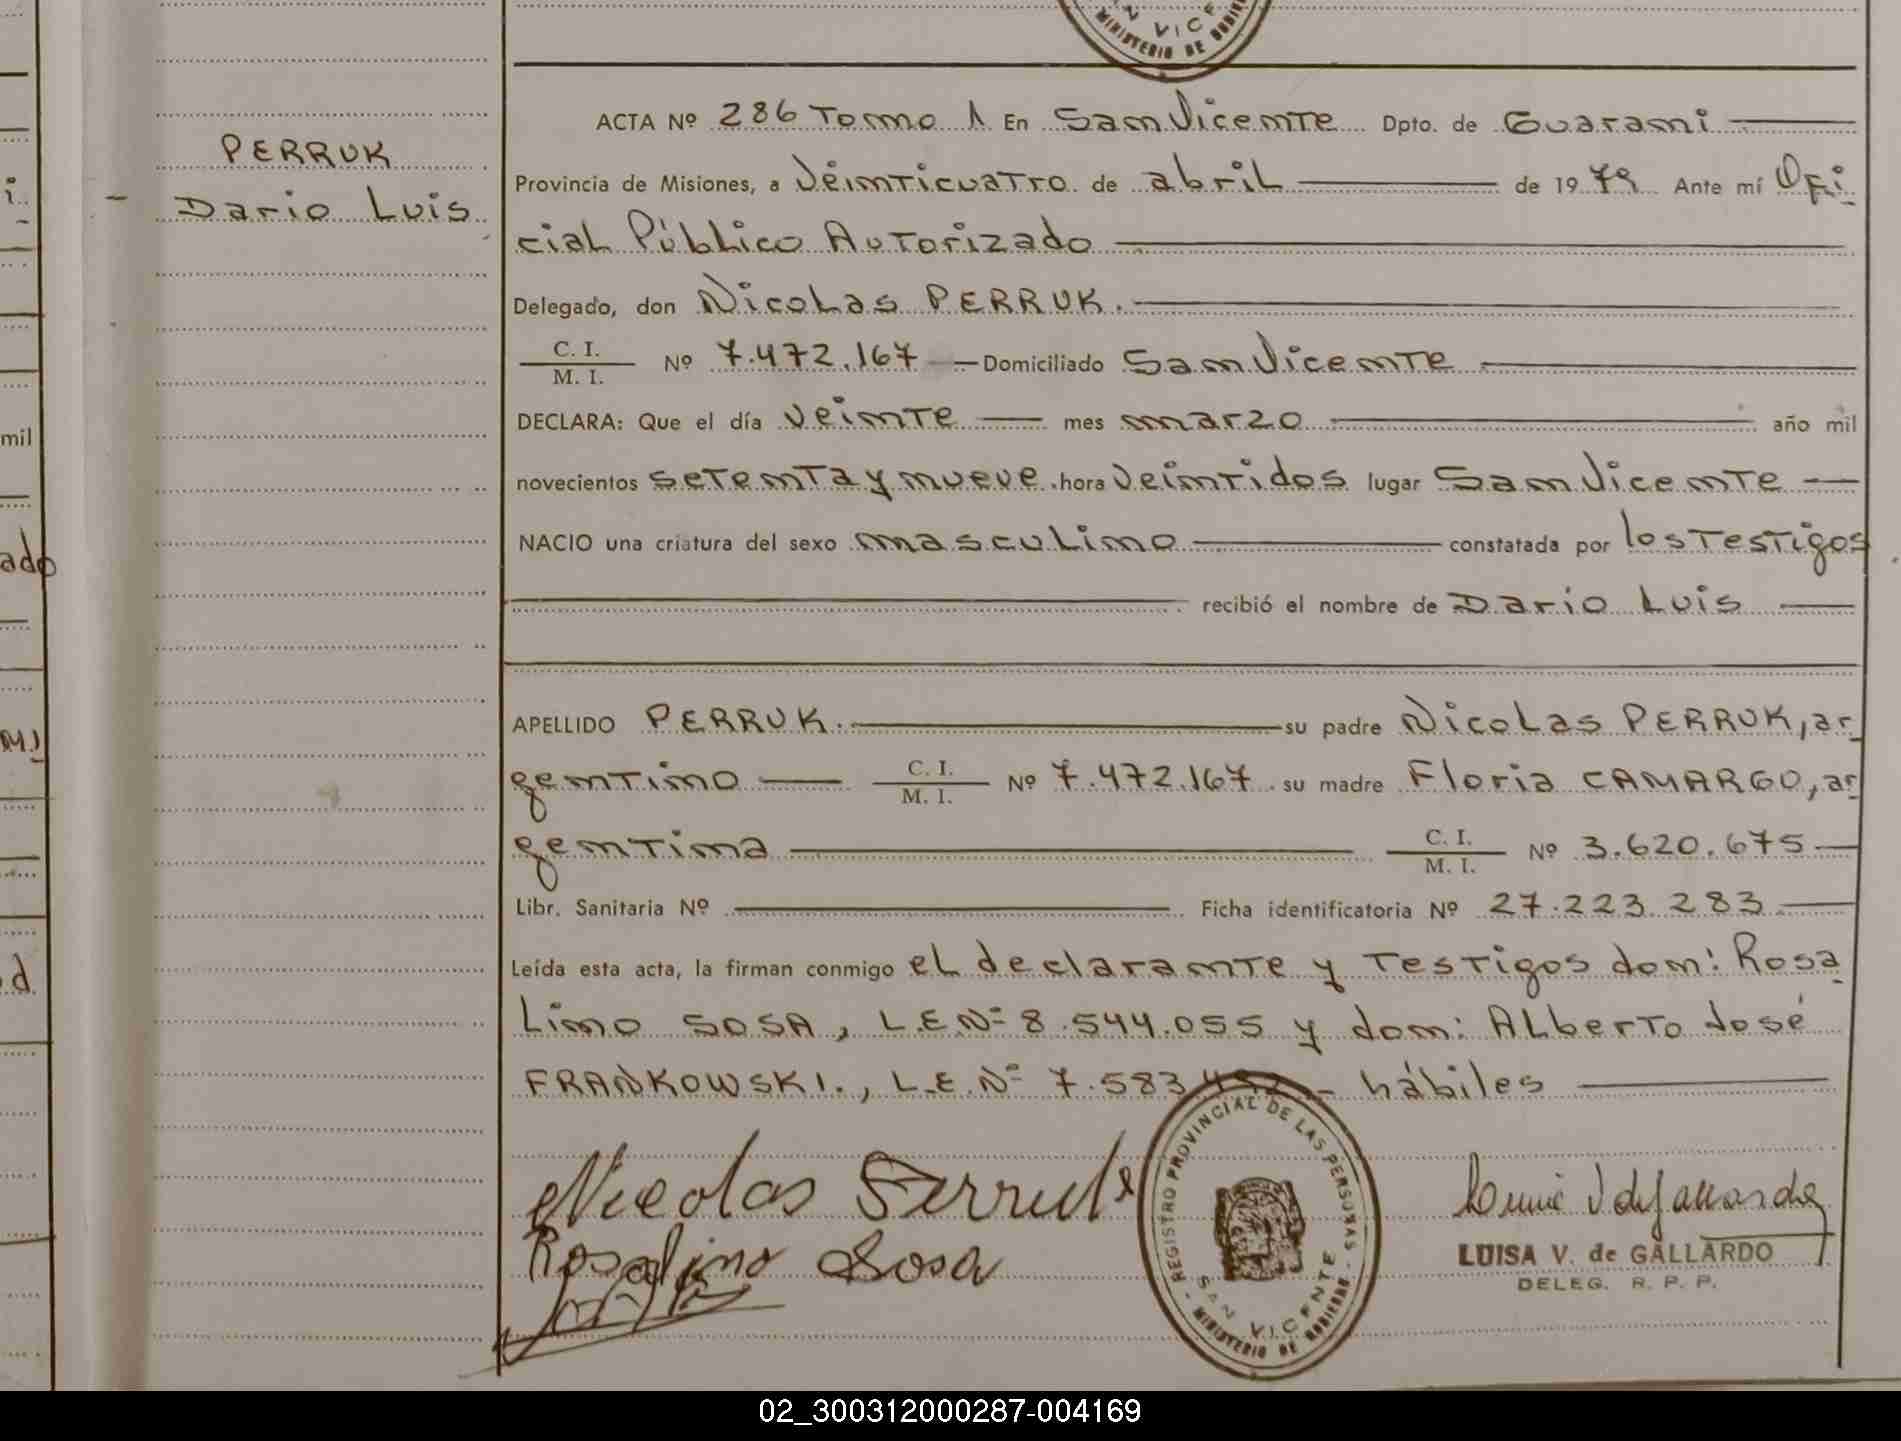 SAN VICE
MINISTERIO DE GOBIE
PERRUK
Dario Luis
ACTA Nº 286 Tomo 1 En San Vicente Dpto. de Guarani
Provincia de Misiones, a veinticuatro de abril de 1979 Ante mí Ofi
cial Público Autorizado
Delegado, don Nicolas PERRUK.
C. I.
M. I. Nº 7.472.167 Domiciliado San Vicente
DECLARA: Que el día veinte mes marzo año mil
novecientos setenta y nueve hora veintidos lugar San Vicente
NACIO una criatura del sexo masculino constatada por los Testigos
recibió el nombre de Dario Luis
APELLIDO PERRUK. su padre Nicolas PERRUK, ar
gentino C. I.
M. I. Nº 7.472.167 su madre Floria CAMARGO, ar
gentina C. I.
M. I. Nº 3.620.675
Libr. Sanitaria Nº Ficha identificatoria Nº 27.223.283
Leída esta acta, la firman conmigo el declarante y Testigos don: Rosa
Lino SOSA, L.E.Nº 8.544.055 y don: Alberto José
FRANKOWSKI., L.E.Nº 7.583 - hábiles
Nicolas Perruk
Rosalino Sosa
REGISTRO PROVINCIAL DE LAS PERSONAS
SAN VICENTE
MINISTERIO DE GOBIERNO
LUISA V. de GALLARDO
DELEG. R. P. P.
mil
ado
02_300312000287-004169